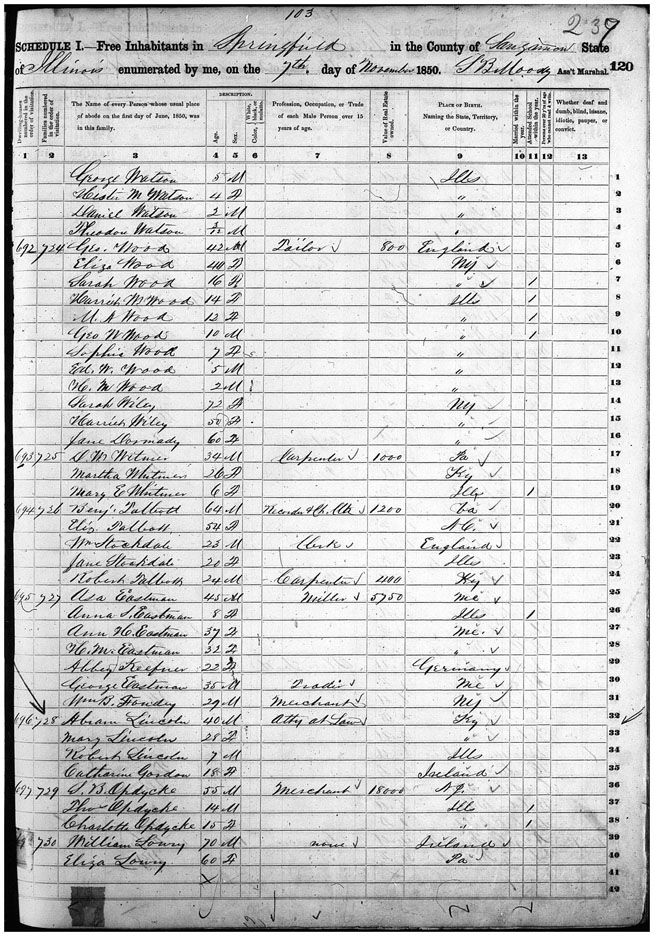 103
237
SCHEDULE I.—Free Inhabitants in Springfield in the County of Sangamon State
of Illinois enumerated by me, on the 7th day of November 1850. Ass't Marshal. 120
DESCRIPTION.
Dwelling-houses numbered in the order of visitation. Families numbered in the order of visitation. The Name of every Person whose usual place of abode on the first day of June, 1850, was in this family. Age. Sex. Color, White, black, or mulatto. Profession, Occupation, or Trade of each Male Person over 15 years of age. Value of Real Estate owned. PLACE OF BIRTH. Naming the State, Territory, or Country. Married within the year. Attended School within the year. Persons over 20 y'rs of age who cannot read & write. Whether deaf and dumb, blind, insane, idiotic, pauper, or convict.
1 2 3 4 5 6 7 8 9 10 11 12 13
George Watson 5 M Ills 1
Hester M Watson 4 F " 2
Daniel Watson 2 M " 3
Theodore Watson M " 4
692 724 Geo. Wood 42 M Tailor 800 England 5
Eliza Wood 40 F NY 6
Sarah Wood 16 F " 1 7
Harriet M Wood 14 F Ills 1 8
M. A Wood 12 F " 1 9
Geo W Wood 10 M " 1 10
Sophia Wood 7 F " 11
Ed. W. Wood 5 M " 12
H. M Wood 2 M " 13
Sarah Wiley 72 F NY 14
Harriet Wiley 50 F " 15
Jane Dormady 60 F " 16
693 725 D. W. Witmer 34 M Carpenter 1000 Pa 17
Martha Whitmer 26 F Ky 18
Mary E Whitmer 6 F Ills 1 19
694 726 Benj. Talbott 64 M 1200 20
Eliz Talbott 54 F N.C. 21
Wm Stockdale 23 M Clerk England 22
Jane Stockdale 20 F Ills 23
Robert Talbott 24 M Carpenter 400 Ky 24
695 727 Asa Eastman 45 M Miller 5750 Me 25
Anna S. Eastman 8 F Ills 1 26
Ann H. Eastman 37 F Me. 27
H. M. Eastman 32 F " 28
Abbey Keefner 22 F Germany 29
George Eastman 35 M Trader Me 30
Wm B. Fondey 29 M Merchant NY 31
696 728 Abram Lincoln 40 M Atty at Law Ky 32
Mary Lincoln 28 F " 33
Robert Lincoln 7 M Ills 34
Catharine Gordon 18 F Ireland 35
697 729 S. B. Opdycke 55 M Merchant 18000 N.J. 36
Tho Opdycke 14 M Ills 1 37
Charlotte Opdycke 15 F " 1 38
730 William Lowry 70 M none Ireland 39
Eliza Lowry 60 F Pa 40
41
42